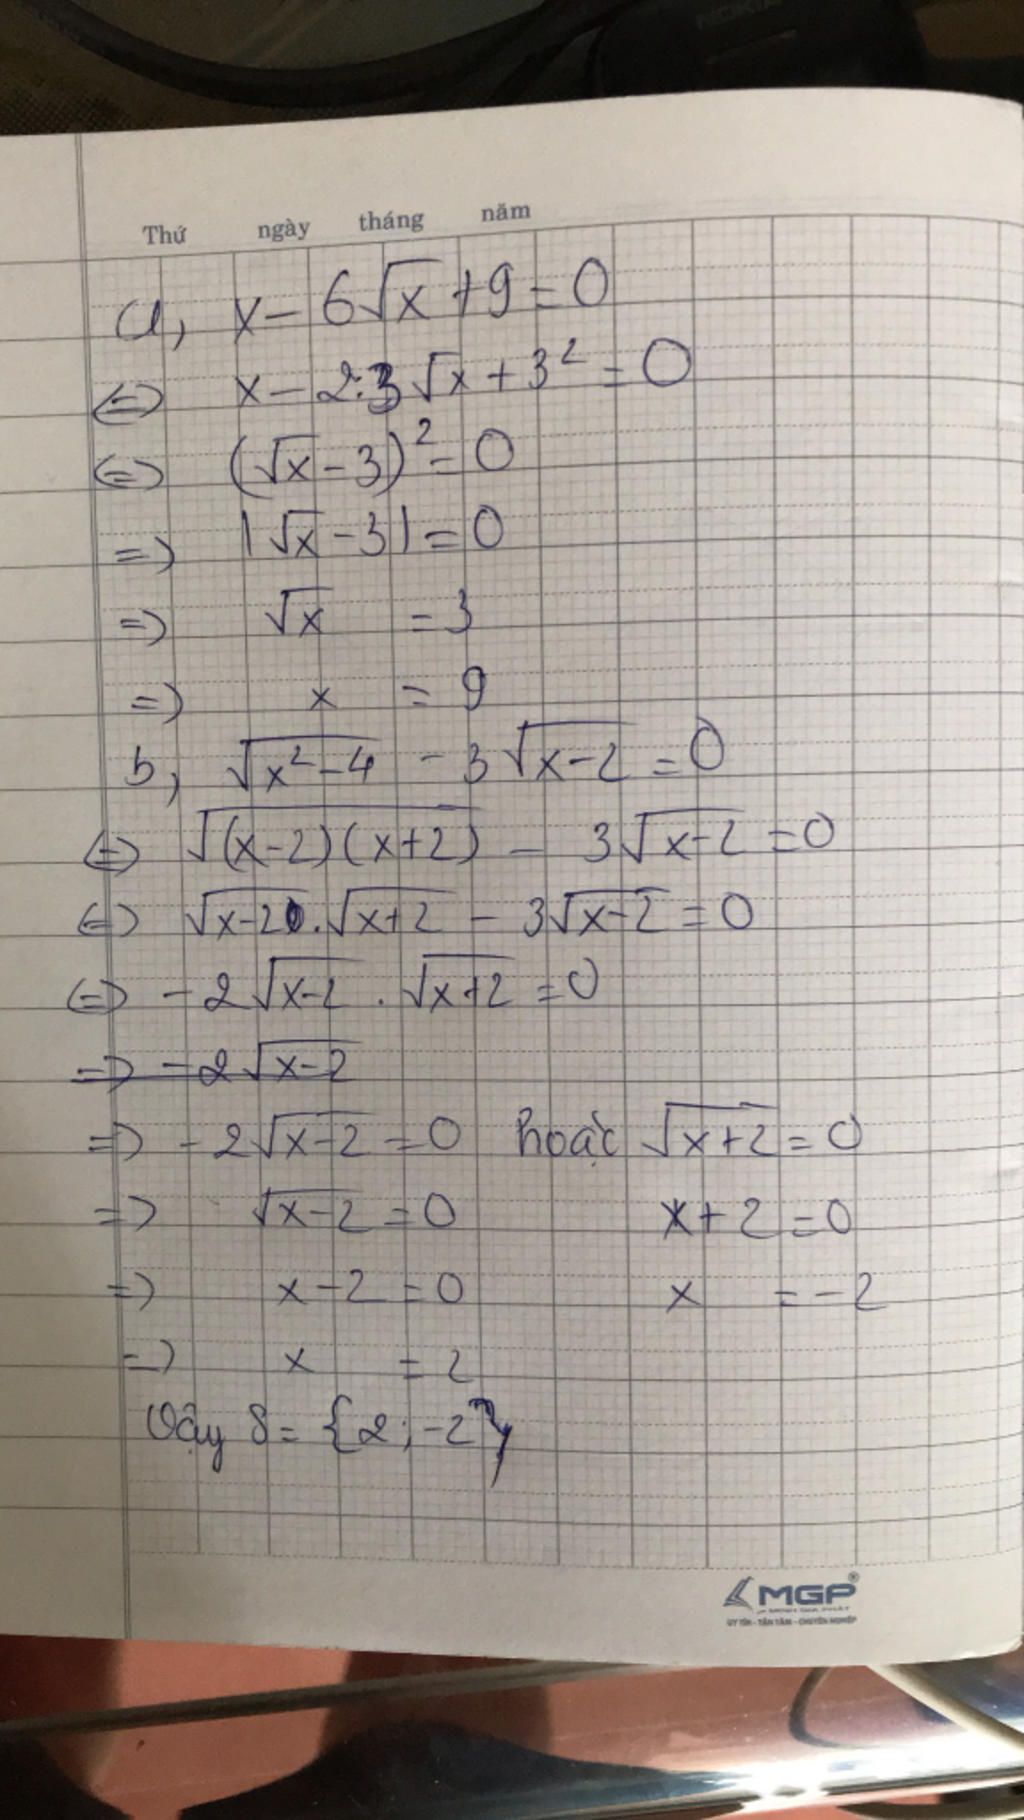 NOKIA
Thứ ngày tháng năm
a, x - 6√x + 9 = 0
<=> x - 2.3√x + 3² = 0
<=> (√x - 3)² = 0
=> |√x - 3| = 0
=> √x = 3
=> x = 9
b, √(x² - 4) - 3√(x-2) = 0
<=> √((x-2)(x+2)) - 3√(x-2) = 0
<=> √(x-2) . √(x+2) - 3√(x-2) = 0
<=> -2√(x-2) . √(x+2) = 0
=> -2√(x-2)
=> -2√(x-2) = 0 hoặc √(x+2) = 0
=> √(x-2) = 0 x+2 = 0
=> x-2 = 0 x = -2
=> x = 2
Vậy S = {2; -2}
MGP
UY TÍN - TẬN TÂM - CHUYÊN NGHIỆP